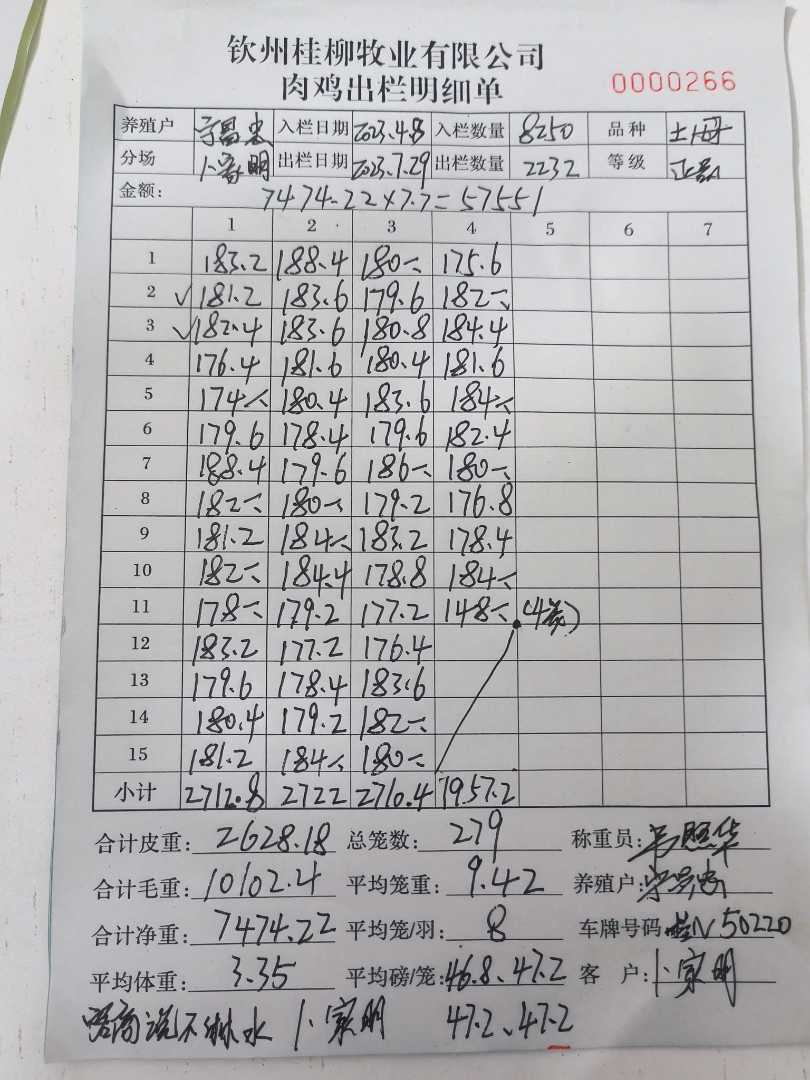 钦州桂柳牧业有限公司
肉鸡出栏明细单 0000266
养殖户 入栏日期 2023.4.8 入栏数量 8250 品种 土
分场 出栏日期 2023.7.29 出栏数量 2232 等级 正
金额: 7474.22×7.7=57551
1 2 3 4 5 6 7
1 183.2 188.4 180 175.6
2 181.2 183.6 179.6 182
3 182.4 183.6 180.8 184.4
4 176.4 181.6 180.4 181.6
5 174 180.4 183.6 184
6 179.6 178.4 179.6 182.4
7 188.4 179.6 186 180
8 182 180 179.2 176.8
9 181.2 184 183.2 178.4
10 182 184.4 178.8 184
11 178 179.2 177.2 148
12 183.2 177.2 176.4
13 179.6 178.4 183.6
14 180.4 179.2 182
15 181.2 184 180
小计 2712.8 2722 2710.4 1957.2
合计皮重: 2628.18 总笼数: 279 称重员:
合计毛重: 10102.4 平均笼重: 9.42 养殖户:
合计净重: 7474.22 平均笼/羽: 8 车牌号码 桂N50220
平均体重: 3.35 平均磅/笼: 46.8、47.2 客户: 卜家明
说不淋水 卜家明 47.2、47.2